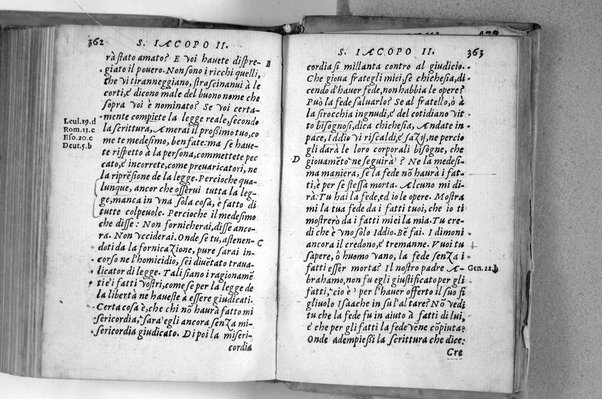 362
S. IACOPO II.
rà stato amato? E voi hauete dispre-
giato il pouero. Non sono i ricchi quelli,
che vi tiranneggiano, strascinanui à le
corti, e dicono male del buono nome che
sopra voi è nominato? Se voi certa-
mente compiete la legge reale, secondo
la scrittura, Amerai il prossimo tuo, co
me te medesimo, ben fate: ma se haue-
te rispetto à la persona, commettete pec
cato, è incorrete, come preuaricatori, ne
la riprēsione de la legge. Percioche qua-
lunque, ancor che osserui tutta la leg-
ge, manca in vna sola cosa, è fatto di
tutte colpeuole. Percioche il medesimo
che disse: Non fornicherai, disse anco-
ra. Non vcciderai. Onde se tu, astenen-
doti da la fornicazione, pure sarai in-
corso ne l'homicidio, sei diuētato traua-
licator di legge. Tali siano i ragionamē
ti e i fatti vostri, come se per la legge de
la libertà ne haueste à essere giudicati.
Certa cosa è, che chi nō haurà fatto mi
sericordia, sarà egli ancora senza mi-
sericordia giudicato. Di poi la miseri-
cordia
Leui.19.d
Rom.13.c
Eso.20.c
Deut.5.b
B
C
S. IACOPO II.
363
cordia si millanta contro al giudicio.
Che gioua frategli miei, se chichesia, di
cendo d'hauer fede, non habbia le opere?
Può la fede saluarlo? Se al fratello, ò à
la sirocchia ignudi, è del cotidiano vit
to bisognosi, dica chichesia, Andate in
pace, Iddio vi riscaldi, è sazij, ne perciò
gli darà le loro corporali bisogne, che
giouamēto ne seguirà? Ne la medesi-
ma maniera, se la fede nō haurà i fat-
ti, è per se stessa morta. Alcuno mi di-
rà: Tu hai la fede, ed io le opere. Mostra
mi la tua fede da i fatti tuoi, che io ti
mostrerò da i fatti miei la mia. Tu cre-
di che è vno solo Iddio. Bē fai. I dimoni
ancora il credono, è tremanne. Vuoi tu
sapere, ò huomo vano, la fede senza i
fatti esser morta? Il nostro padre A-
brahamo, non fu egli giustificato per gli
fatti, cio è per l'hauer offerto il suo fi
gliuolo Isaache in su l'altare? Nō vedi
tu che la fede fu in aiuto à fatti di lui,
è che per gli fatti la fede vēne cōpiuta?
Onde adempiessi la scrittura che dice:
Cre
D
Gen.22.b